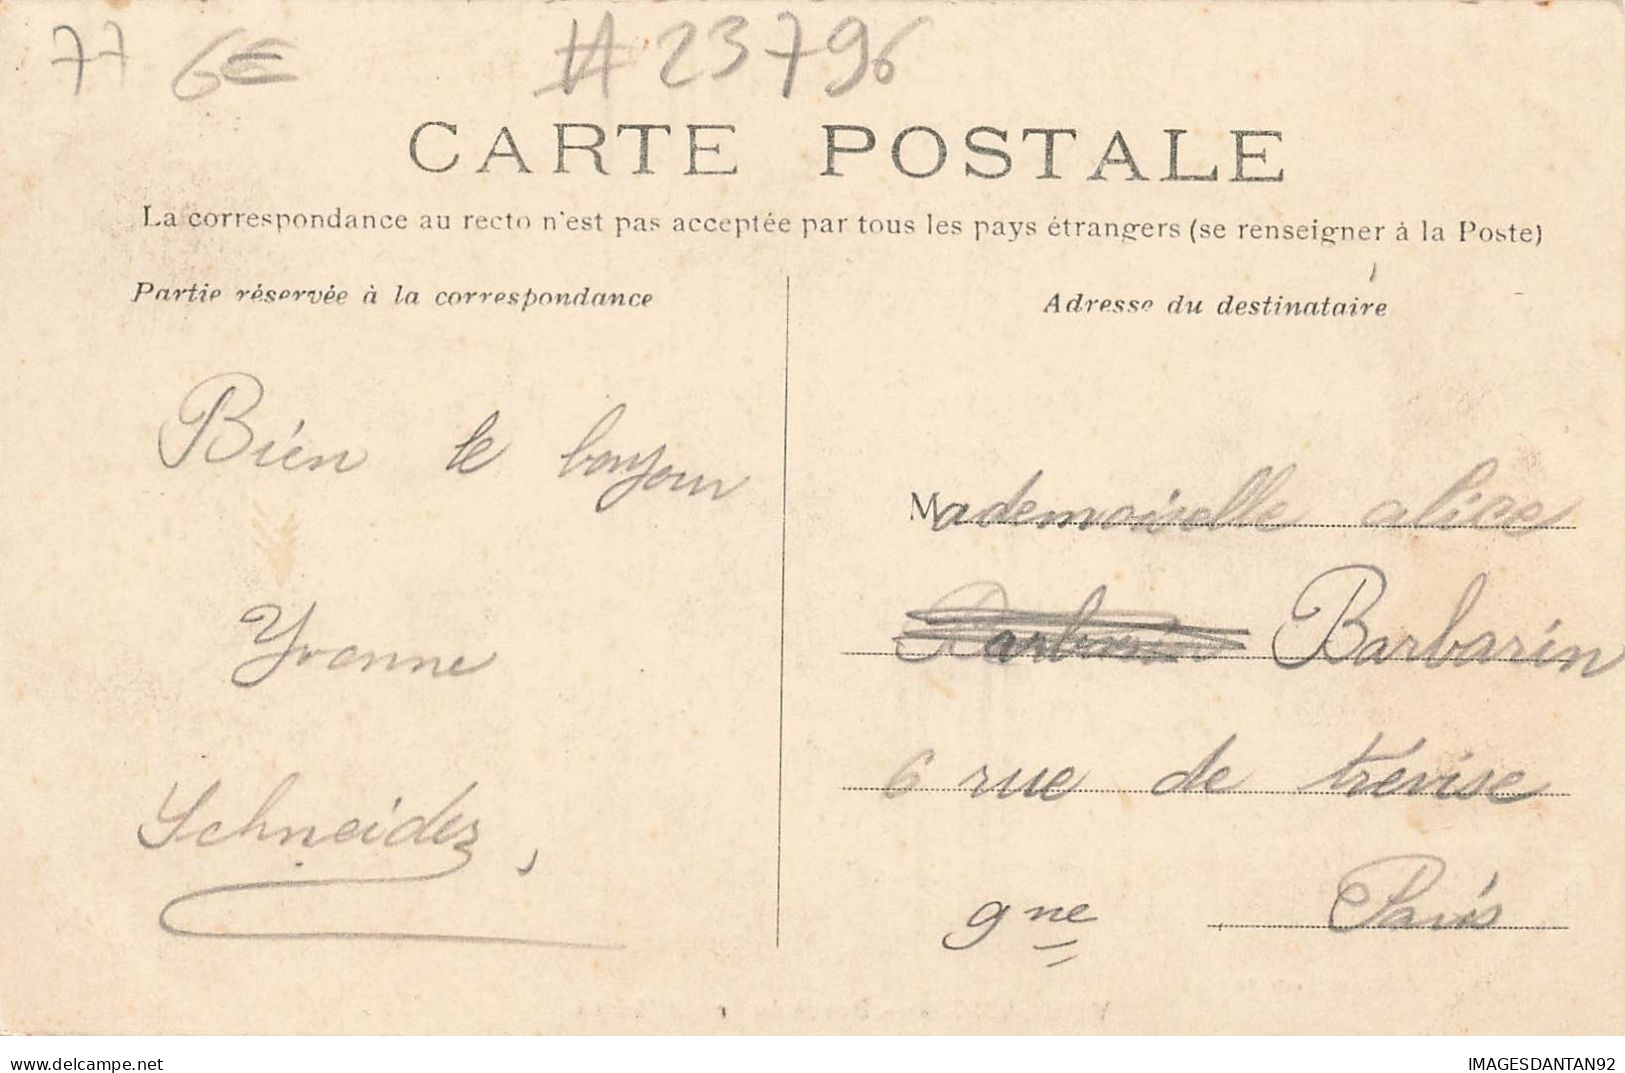 77 6€ #23796
CARTE POSTALE
La correspondance au recto n'est pas acceptée par tous les pays étrangers (se renseigner à la Poste)
Partie réservée à la correspondance
Adresse du destinataire
Bien le bonjour
Yvonne
Schneider,
Mademoiselle alice
Barbarin
6 rue de trévise
9 ne
Paris
www.delcampe.net
IMAGESDANTAN92